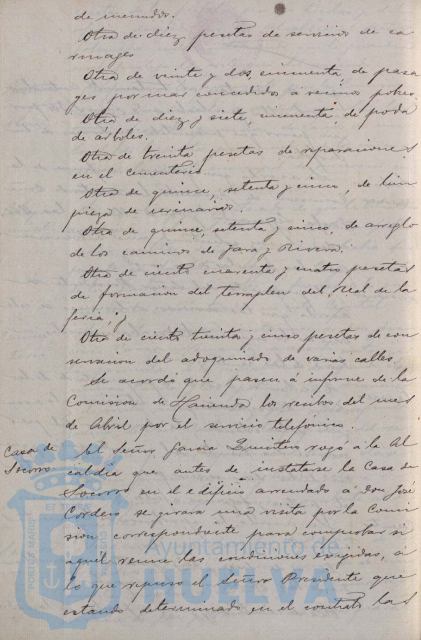 de menudos.
Otra de diez pesetas de servicio de ca
rruages
Otra de veinte y dos, cincuenta, de pasa
ges por mar concedidos a vecinos pobres
Otra de diez y siete, cincuenta de poda
de árboles.
Otra de treinta pesetas de reparaciones
en el cementerio.
Otra de quince, setenta y cinco, de lim
pieza de
Otra de quince, setenta y cinco, de arreglo
de los caminos de Jara y Rivera.
Otra de ciento cuarenta y cuatro pesetas
de formacion del terraplen del Real de la
feria; y
Otra de ciento treinta y cinco pesetas de con
servacion del adoquinado de varias calles.
Se acordó que pasen á informe de la
Comision de Hacienda los recibos del mes
de Abril por el servicio telefonico.
Casa de
Socorro
El Señor Garcia Quintero rogó á la Al
caldia que antes de instalarse la Casa de
Socorro en el edificio arrendado á Don José
Cordero se girara una visita por la Comi
sion correspondiente para comprobar si
aquél reune las condiciones exigidas, á
lo que repuso el Señor Presidente que
estando determinado en el contrato las
Ayuntamiento de
HUELVA